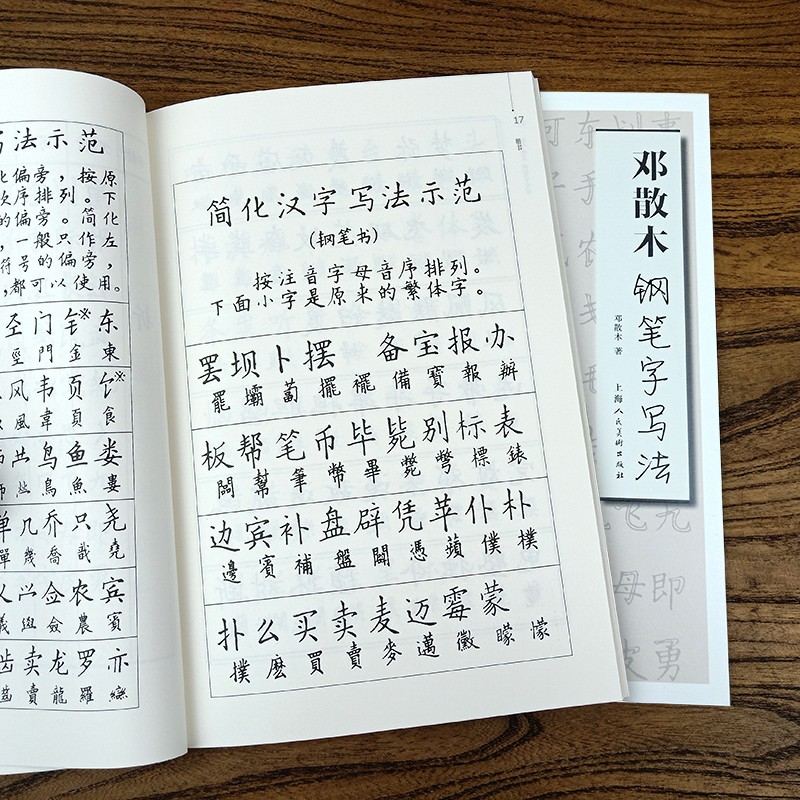 写法示范
化偏旁，按原
次序排列。下
的偏旁。简化
，一般只作左
符号的偏旁，
，都可以使用。
圣门钅※东
巠門金東
风韦页饣※
風韋頁食
鸟鱼娄
鳥魚婁
单几乔只尧
單幾喬戠堯
佥农宾
僉農賓
齿卖龙罗亦
齒賣龍羅䜌
17
简化汉字写法示范
（钢笔书）
按注音字母音序排列。
下面小字是原来的繁体字。
罢坝卜摆 备宝报办
罷壩蔔擺襬備寶報辦
板帮笔币毕毙别标表
闆幫筆幣畢斃彆標錶
边宾补盘辟凭苹仆朴
邊賓補盤闢憑蘋僕樸
扑么买卖麦迈霉蒙
撲麽買賣麥邁黴矇懞
邓散木
钢笔字写法
邓散木 著
上海人民美術出版社